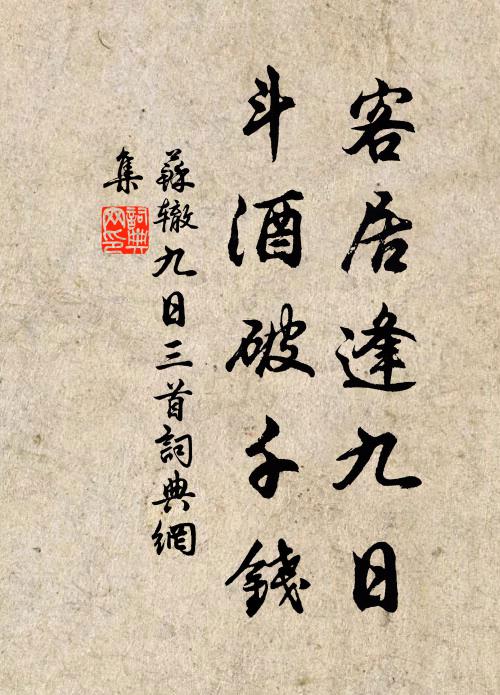 客居逢九日
斗酒破千錢
蘇辙九日三首詞典網
集
詞典
网印